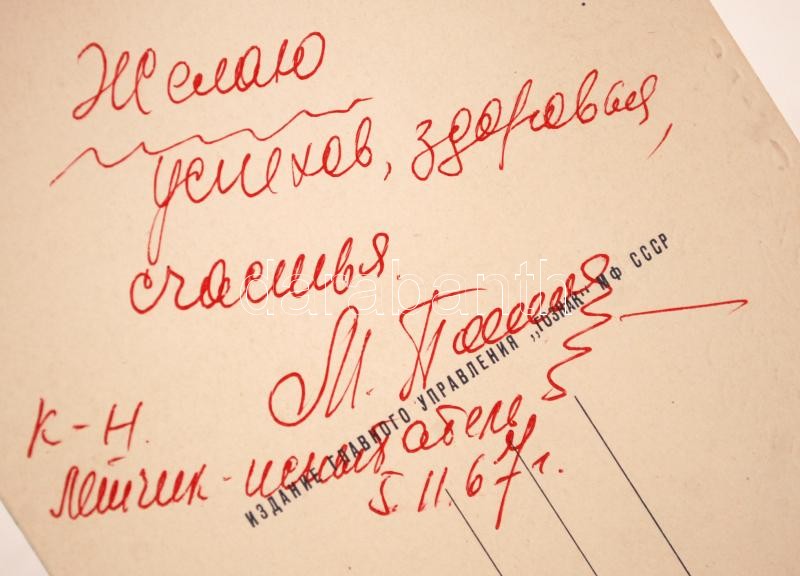 Желаю
успехов, здоровья,
счастья.
М.
К-Н.
лётчик-испытатель
5.11.67г.
ИЗДАНИЕ ГЛАВНОГО УПРАВЛЕНИЯ „ГОЗНАК" МФ СССР
darabanth